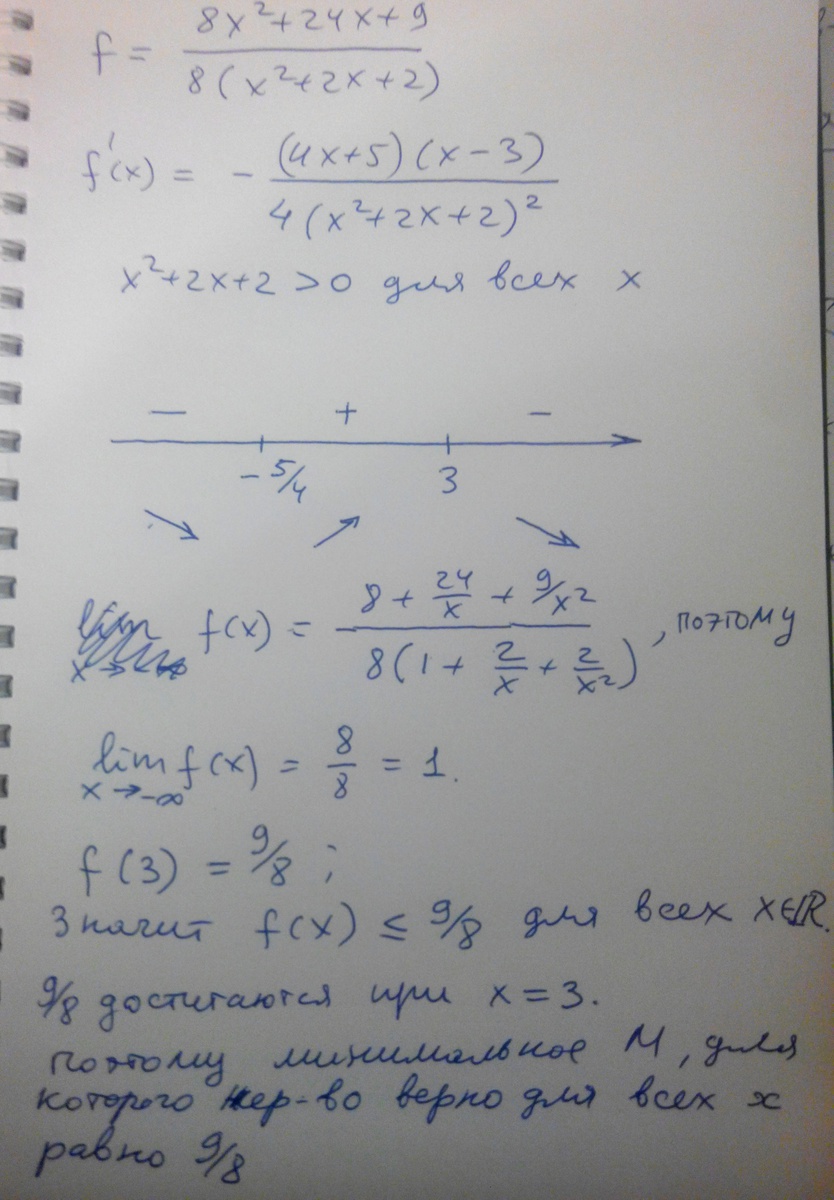 f = (8x²+24x+9) / (8(x²+2x+2))
f'(x) = - ((4x+5)(x-3)) / (4(x²+2x+2)²)
x²+2x+2 >0 для всех x
— + −
-5/4 3
f(x) = (8 + 24/x + 9/x²) / (8(1 + 2/x + 2/x²)) , поэтому
lim x→-∞ f(x) = 8/8 = 1.
f(3) = 9/8 ;
Значит f(x) ≤ 9/8 для всех x∈ℝ.
9/8 достигаются при x = 3.
поэтому минимальное М, для
которого нер-во верно для всех x
равно 9/8